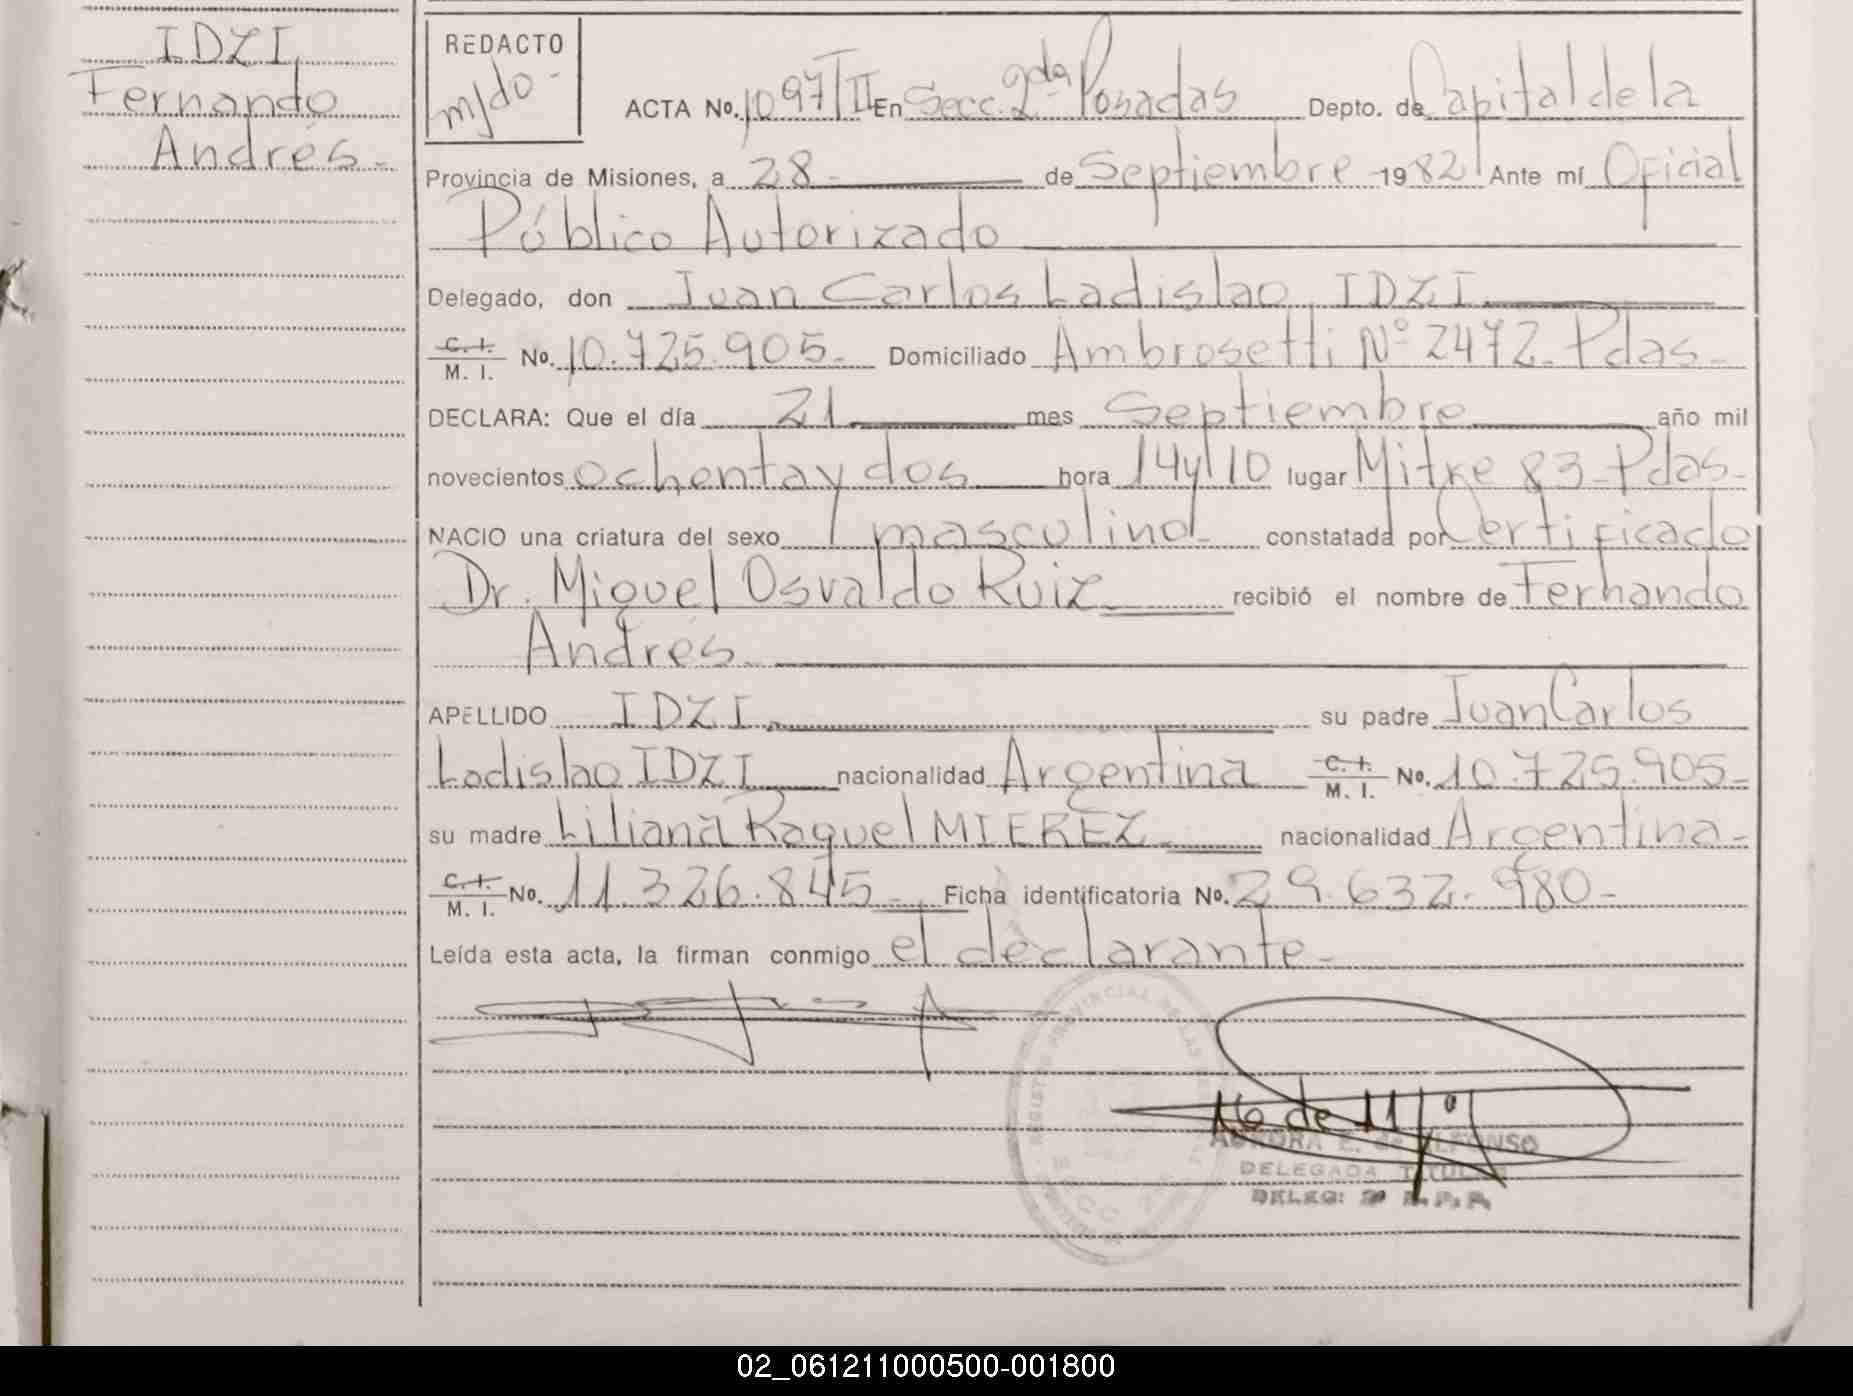 IDZI
Fernando
Andrés-
REDACTO
m/do-
ACTA No. 1097/II En Secc. 2da Posadas Depto. de Capital de la
Provincia de Misiones, a 28- de Septiembre 1982 Ante mí Oficial
Público Autorizado
Delegado, don Juan Carlos Ladislao IDZI
C. I. M. I. No. 10.725.905- Domiciliado Ambrosetti Nº 2472-Pdas-
DECLARA: Que el día 21 mes Septiembre año mil
novecientos ochenta y dos hora 14 y 10 lugar Mitre 83-Pdas-
NACIO una criatura del sexo masculino- constatada por Certificado
Dr. Miguel Osvaldo Ruiz recibió el nombre de Fernando
Andrés
APELLIDO IDZI su padre Juan Carlos
Ladislao IDZI nacionalidad Argentina C. I. M. I. No. 10.725.905-
su madre Liliana Raquel MIEREZ nacionalidad Argentina-
C. I. M. I. No. 11.326.845- Ficha identificatoria No. 29.632.980-
Leída esta acta, la firman conmigo el declarante-
REGISTRO PROVINCIAL DE LAS
16 de 11
AURORA E. de ALFONSO
DELEGADA TITULAR
DELEG:
SECC
02_061211000500-001800